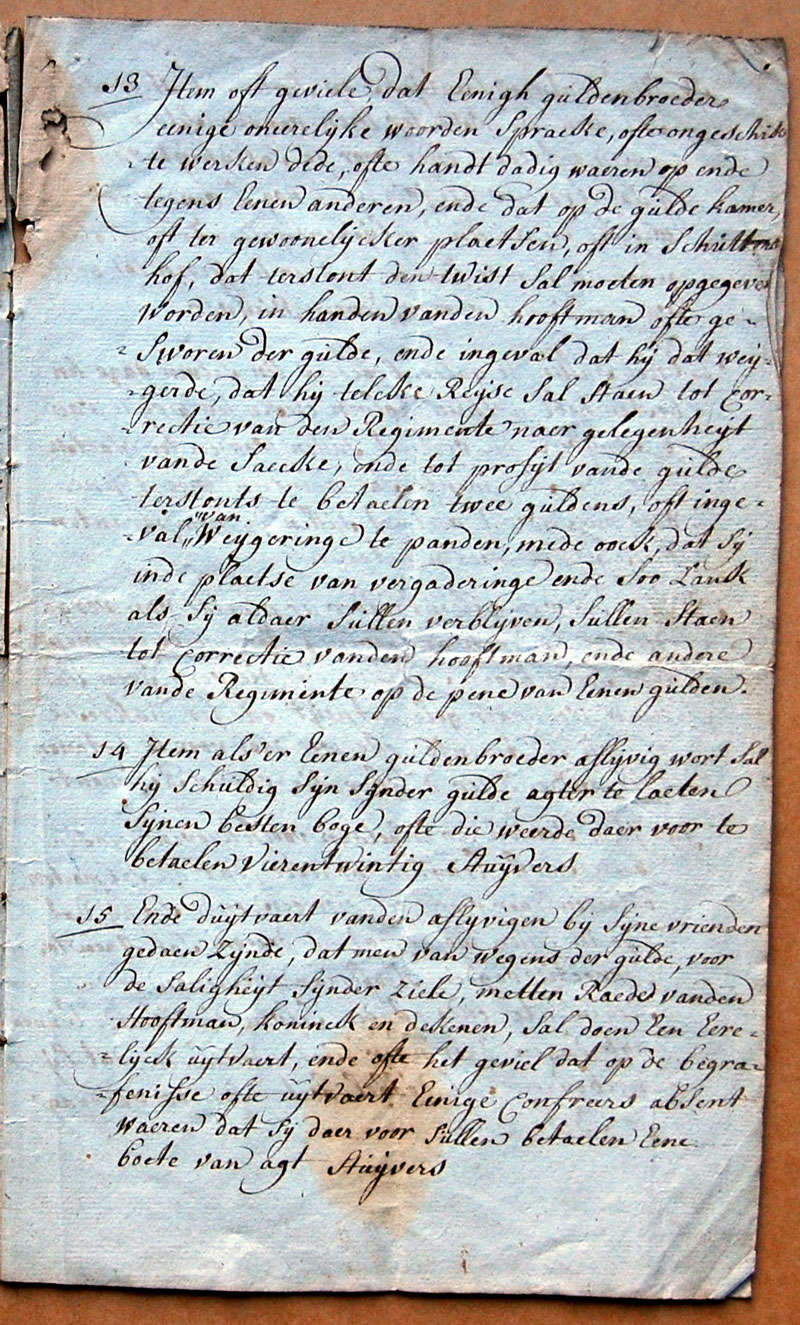 13 Item oft geviele dat Eenigh guldenbroeder
eenige oneerelijke woorden Spraecke, ofte ongeschik
te werken dede, ofte handt dadig waeren op ende
tegens Eenen anderen, ende dat op de gulde kamer,
oft ter gewoonelijcker plaetsen, oft in Schutten
hof, dat terstont den twist Sal moeten opgegeven
worden, in handen vanden hooftman ofte ge-
-Sworen der gulde, ende ingeval dat hij dat wey-
-gerde, dat hij telcke Reyse Sal Staen tot Cor-
-rectie van den Regimente naer gelegenheyt
vande Saecke, ende tot profijt vande gulde
terstonts te betaelen twee guldens, oft inge-
-val van Weijgeringe te panden, mede oock, dat Sij
inde plaetse van vergaderinge ende Soo Lanck
als Sij aldaer Sullen verblijven, Sullen Staen
tot Correctie vanden hooftman, ende andere
vande Regimente op de pene van Eenen gulden.
14 Item als'er Eenen guldenbroeder aflyvig wort Sal
hij Schuldig Sijn Synder gulde agter te laeten
Sijnen besten boge, ofte die weerde daer voor te
betaelen Vierentwintig Stuijvers
15 Ende d'uijtvaert vanden aflyvigen bij Sijne vrienden
gedaen Zijnde, dat men van wegens der gulde, voor
de Saligheyt Synder Ziele, metten Raede vanden
Hooftman, koninck en dekenen, Sal doen Een Eere-
-lijck uijtvaert, ende ofte het geviel dat op de begra-
-fenisse ofte uijtvaert Eenige Confreers absent
waeren dat Sij daer voor Sullen betaelen Eene
boete van agt Stuijvers